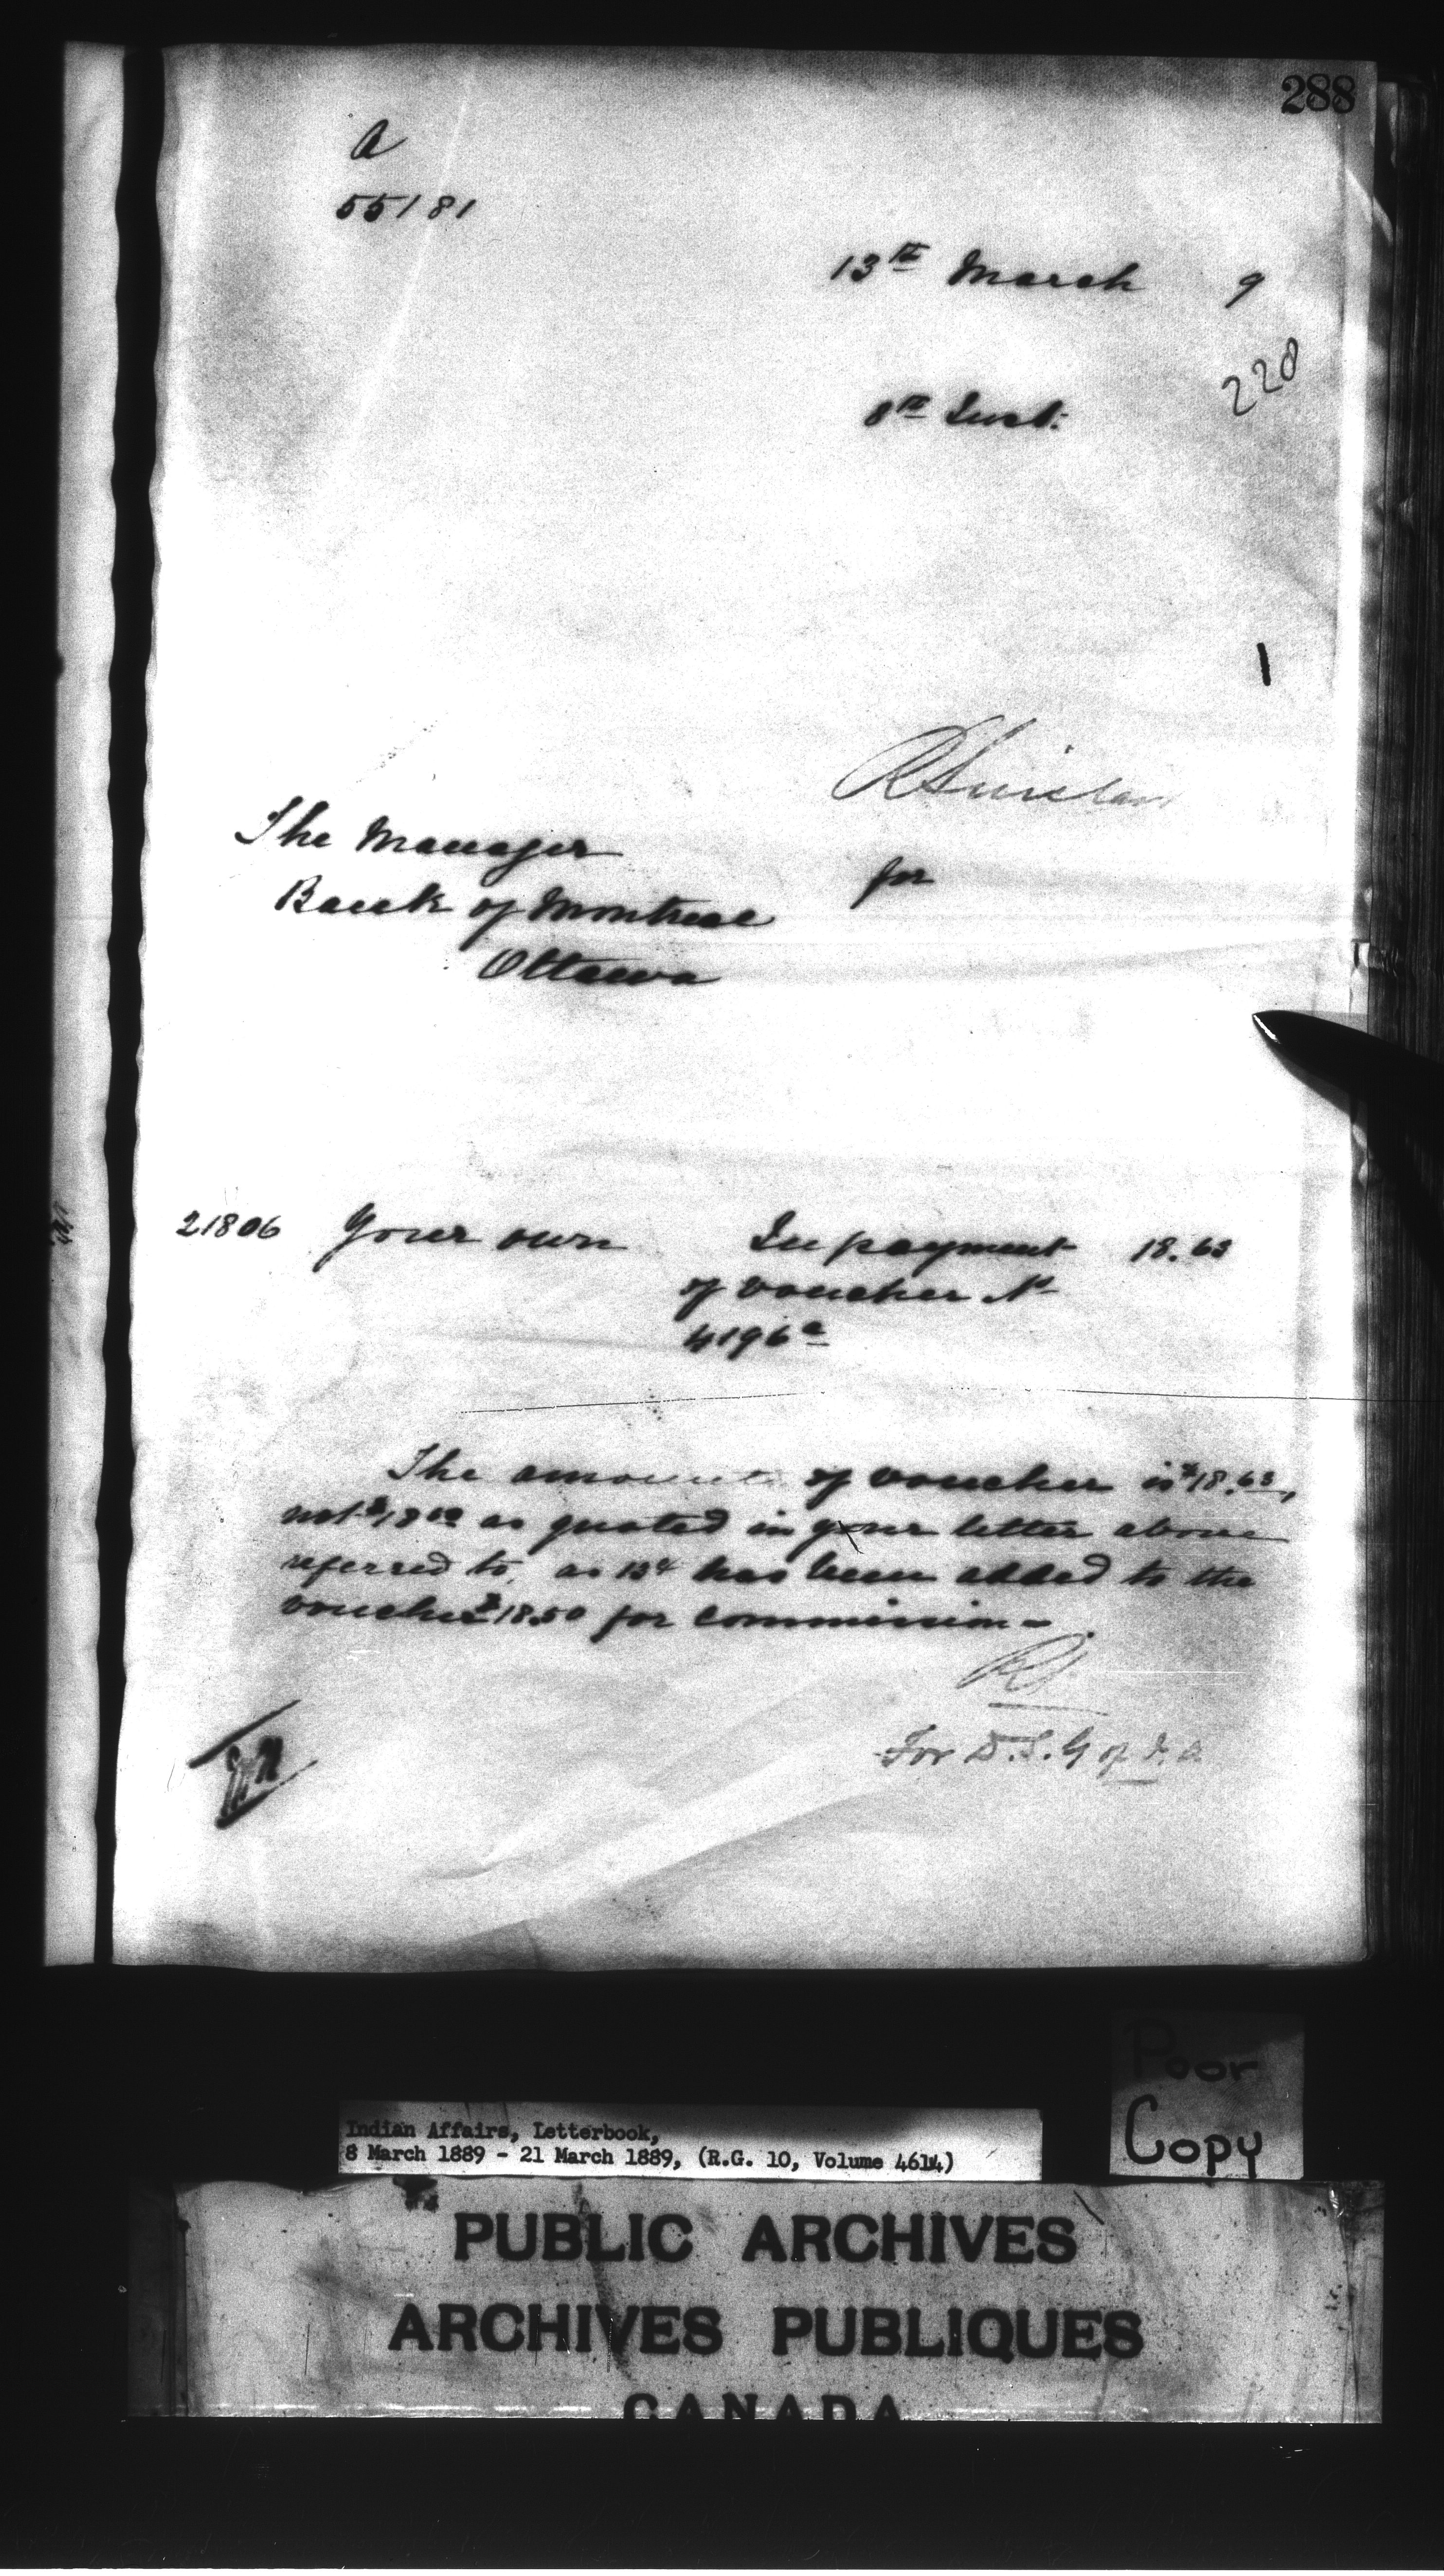 288
A
55181
13th March 9
220
8th Inst:
1
R Sinclair
The Manager
for
Bank of Montreal
Ottawa
21806 Your own In payment 18.63
of voucher No
4196a
The amount of voucher is $18.63,
not $18 as quoted in your letter above
referred to, as 13¢ has been added to the
voucher $18.50 for commission -
RS
For D.S.G of I.A.
Poor
Copy
Indian Affairs, Letterbook,
8 March 1889 - 21 March 1889, (R.G. 10, Volume 4614)
PUBLIC ARCHIVES
ARCHIVES PUBLIQUES
CANADA